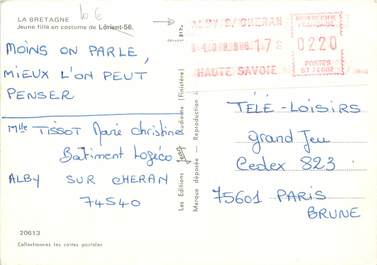 LA BRETAGNE
Jeune fille en costume de Lorient-56.
b 6
MOINS ON PARLE,
MIEUX L'ON PEUT
PENSER
Mlle TISSOT Marie Christine
Bâtiment Logéco
ALBY SUR CHERAN
74540
20613
Collectionnez les cartes postales
Les Editions
Marque déposée - Reproduction
(Finistère)
ALBY S/ CHERAN
HAUTE SAVOIE
0220
POSTES
TÉLÉ-LOISIRS
grand Jeu
Cedex 823
75601 PARIS
BRUNE